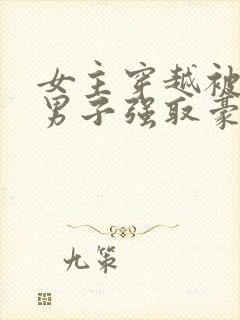 女主穿越被
男子强取豪
九策